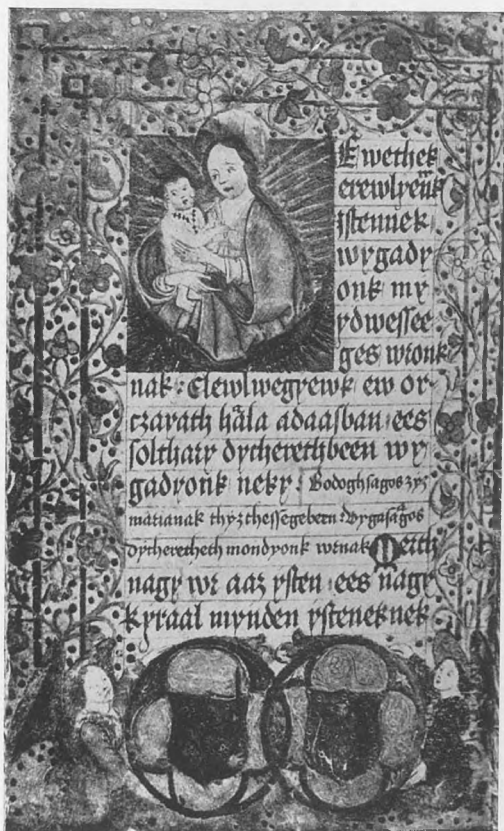 Ewethek
erewlyenk
istennek
wygady
onk my
ydwessee
ges wronk
nak : Elewlwegyewk ew or
czayath hala adaasban ees
solthary dycherethbeen wy
gadyonk neky : Bodoghsagos zyz
marianak thyzthessegebern : Vygasagos
dycherethech mondyonk wrnak Merth
nagy wr aaz ysten ees nagy
kyraal mynden ysteneknek